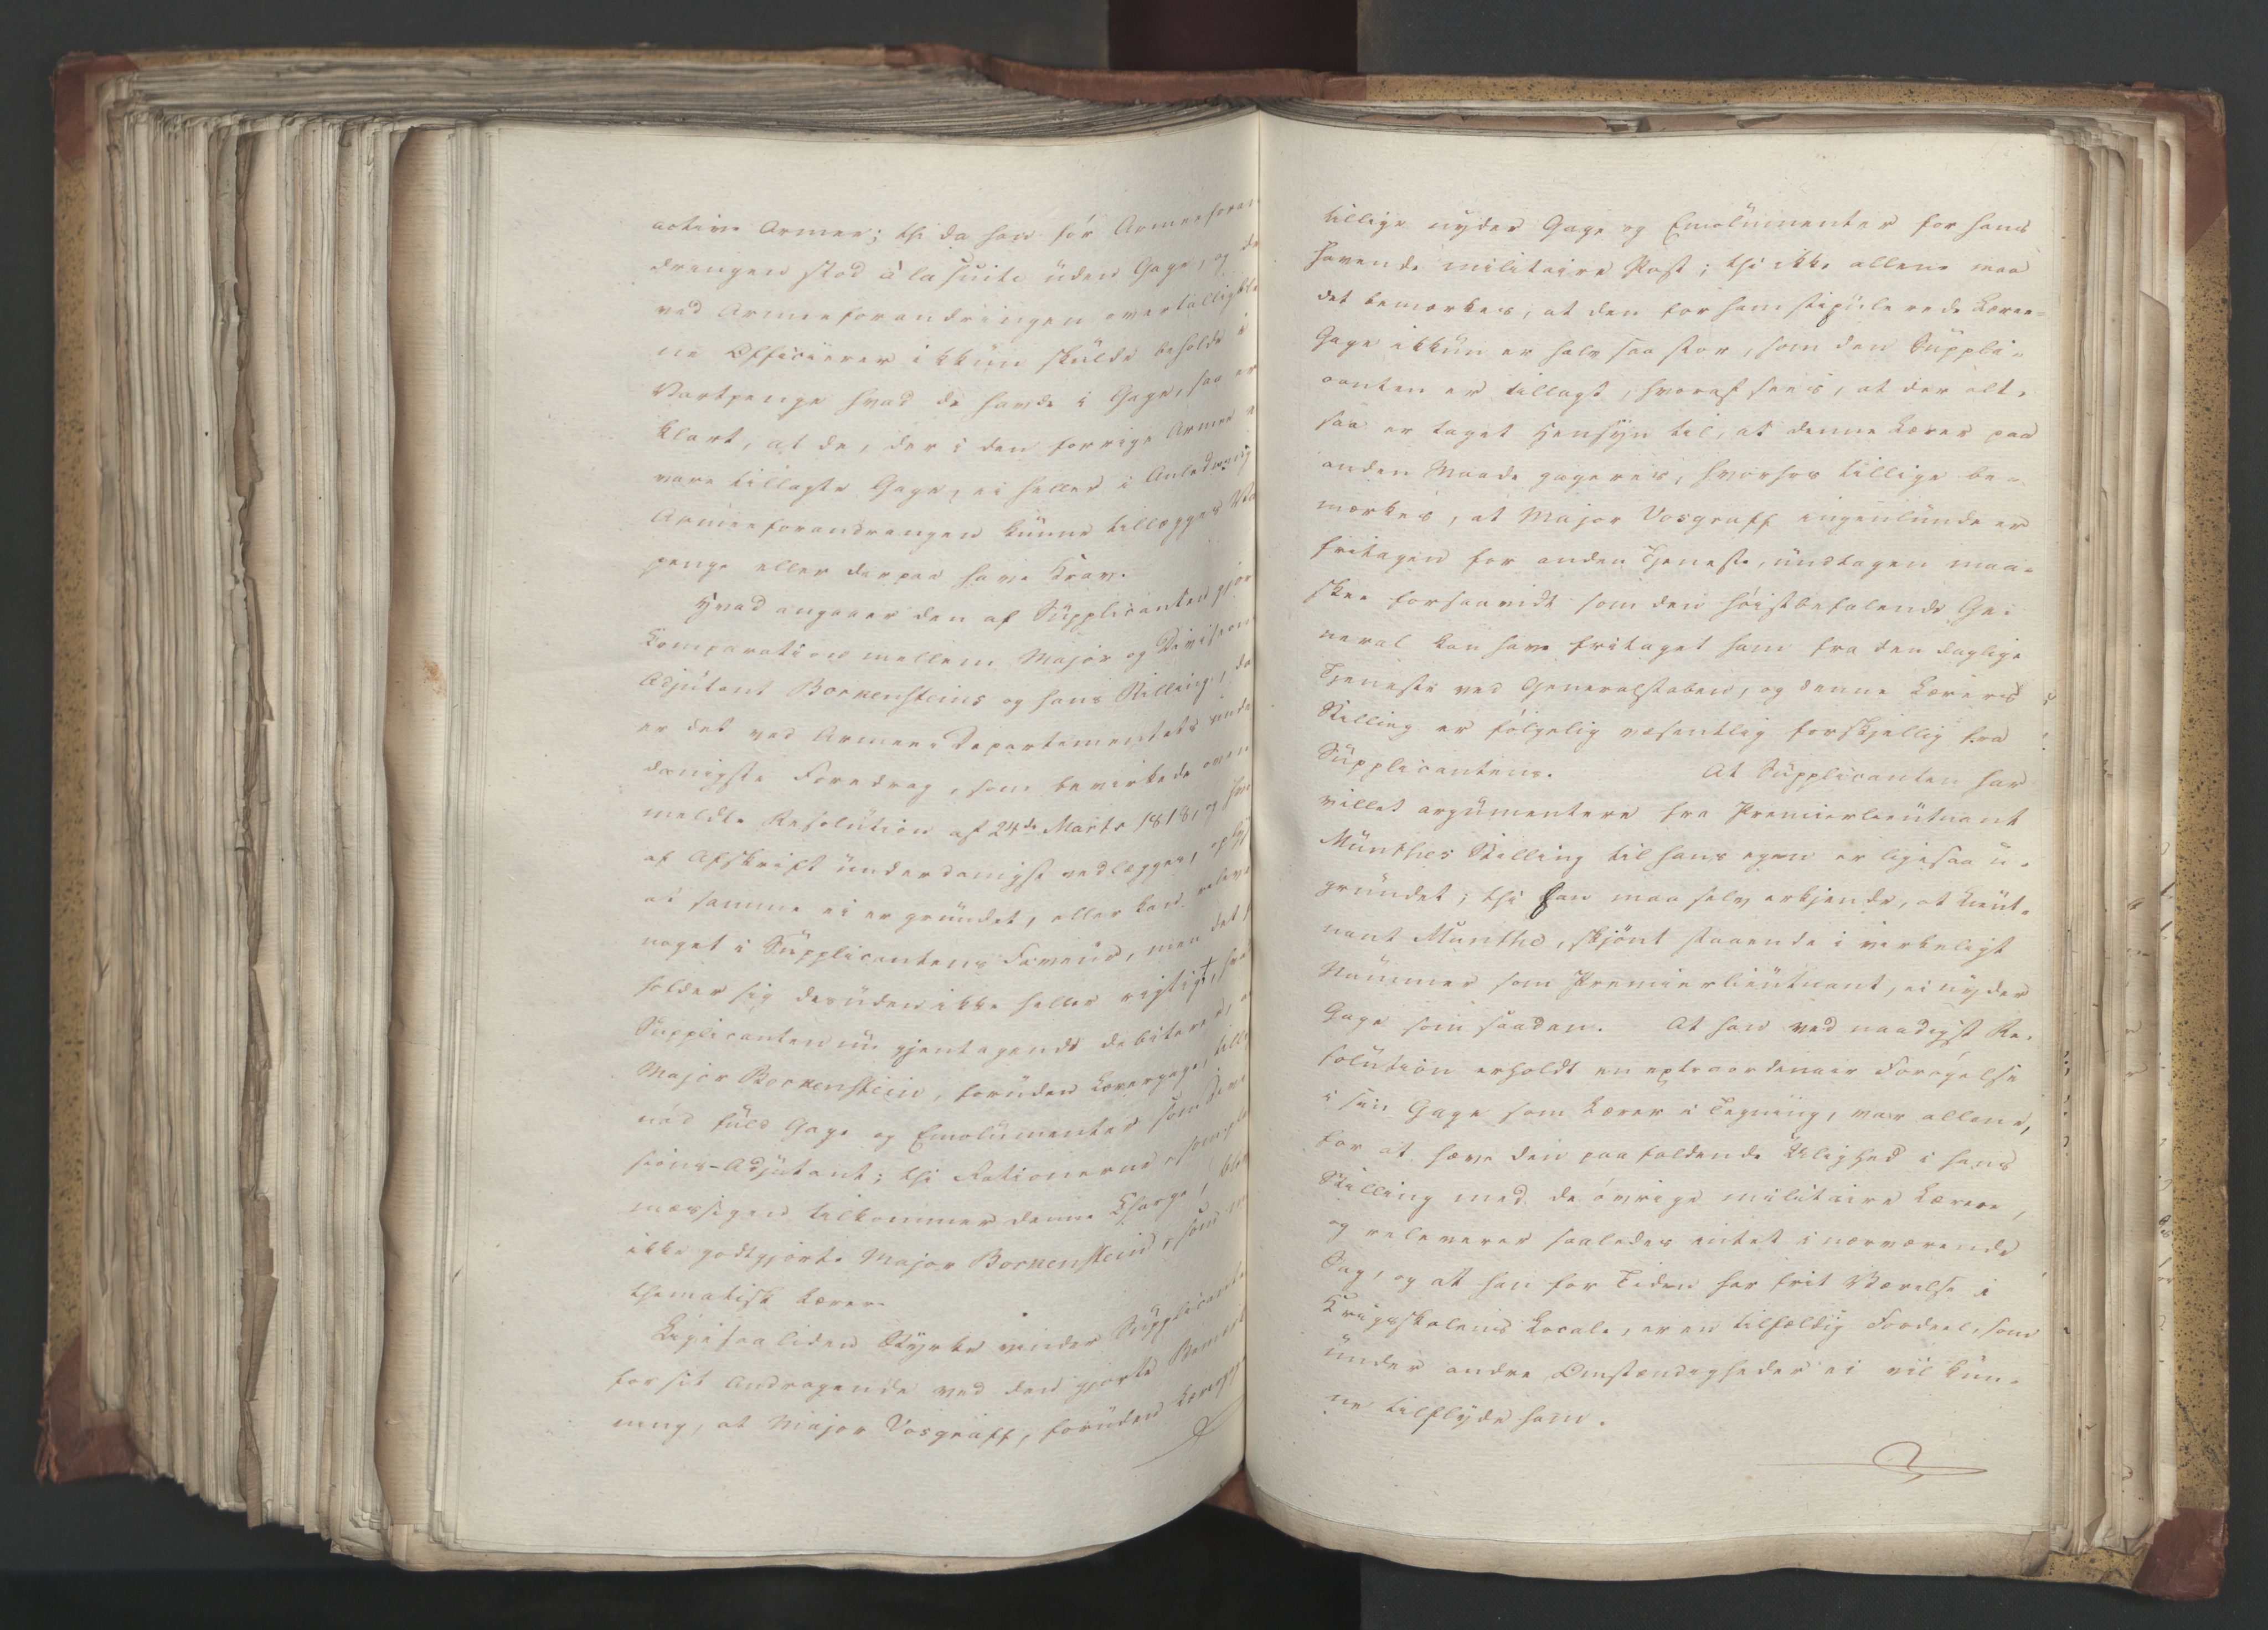 active Armee; thi da han før Armeeforan
drengen stod à la suite uden Gage, og de
ved Armeeforandringen overtalligble
ne Officierer ikkun skulde beholde i
Vartpenge hvad de havde i Gage, saa er
klart, at de, der i den forrige Armee e
vare tillagte Gage, ei heller i Anledning
Armeeforandrengen kunne tillægges Va
penge eller derpaa have Krav.
Hvad angaaer den af Supplicanten gjor
Komparation mellem Major og Division
Adjutant Borkensteins og hans Stilling, da
er det ved Armee-Departementets unde
danigste Foredrag, som bevirkede oven
meldte Resolution af 24de Marts 1818, og hvor
af Afskrift underdanigst vedlægges, oplyst
at samme ei er grundet, eller kan releve
noget i Supplicantens Faveur, men det for
holder sig desuden ikke heller rigtigt, hva
Supplicanten nu gjentagende debiterer, at
Major Borkenstein, foruden Lærergage, till
nød fuld Gage og Emolumenter som Divi
sions-Adjutant; thi Rationerne, som
mæssigen tilkommer denne Charge, blev
ikke godtgjorte Major Borkenstein, som
thematisk Lærer.
Ligesaaliden Styrke vinder Supplicanten
for sit Andragende ved den gjorte Bemærk
ning, at Major Vosgraff, foruden Lærergage
tillige nyder Gage og Emolumenter for hans
havende militaire Post; thi ikke allene maa
det bemærkes, at den for ham stipulerede Lærer-
Gage ikkun er halv saa stor, som den Suppli-
canten er tillagt, hvoraf sees, at der alt-
saa er taget Hensyn til, at denne Lærer paa
anden Maade gageres, hvorhos tillige be-
mærkes, at Major Vosgraff ingenlunde er
fritagen for anden Tjeneste, undtagen maa-
skee forsaavidt som den høistbefalende Ge-
neral kan have fritaget ham fra den daglige
Tjeneste ved Generalstaben, og denne Lærers
Stilling er følgelig væsentlig forskjellig fra
Supplicantens. At Supplicanten har
villet argumentere fra Premierlieutnant
Munthes Stilling til hans egen er ligesaa u-
grundet; thi han maa selv erkjende, at Lieut-
nant Munthe, skjønt staaende i virkeligt
Nummer som Premierlieutnant, ei nyder
Gage som saadan. At han ved naadigst Re-
solution erholdt en extraordinair Forøgelse
i sin Gage som Lærer i Tegning, var allene,
for at hæve den paafaldende Ulighed i hans
Stilling med de øvrige militaire Lærere,
og releverer saaledes intet i nærværende
Sag, og at han for Tiden har frit Værelse i
Krigsskolens Locale, er en tilfældig Fordeel, som
under andre Omstændigheder ei vil kun-
ne tilflyde ham.